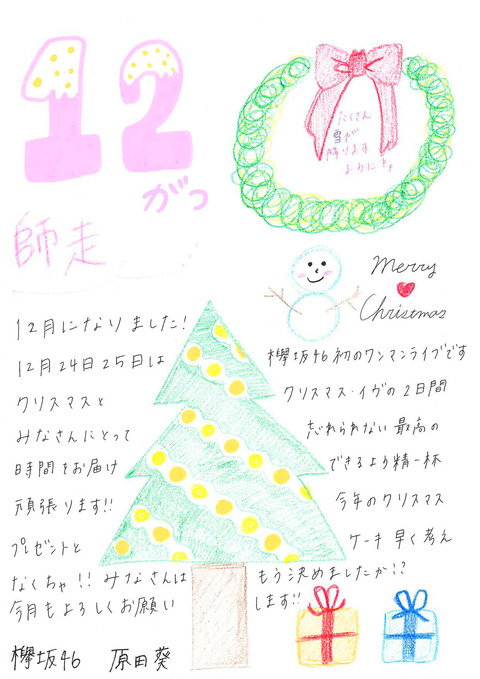 12
がつ
師走
たくさん
雪が
降ります
ように
Merry
Christmas
12月になりました!
12月24日25日は 欅坂46初のワンマンライブです
クリスマスと クリスマス・イヴの2日間
みなさんにとって 忘れられない最高の
時間をお届け できるよう精一杯
頑張ります!! 今年のクリスマス
プレゼントと ケーキ早く考え
なくちゃ!! みなさんは もう決めましたか!?
今月もよろしくお願い します!!
欅坂46 原田葵